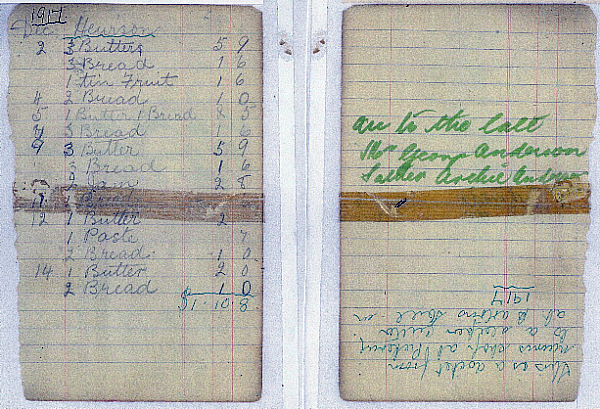 1917
Dec Hewson
2 3 Butters 5 9
3 Bread 1 6
1 Tin Fruit 1 6
4 2 Bread 1 0
5 1 Butter 1 Bread 5
7 3 Bread 1 6
9 3 Butter 5 9
3 Bread 1 6
2 Jam 2 8
Bread
12 1 Butter 2
1 Paste 7
2 Bread 1 0
14 1 Butter 2 0
2 Bread 1 0
£1.10.8
to the late
Mr George Anderson
Father Archie Anderson
This is a docket from
shop at
to a sleeper cutter
at in
1917